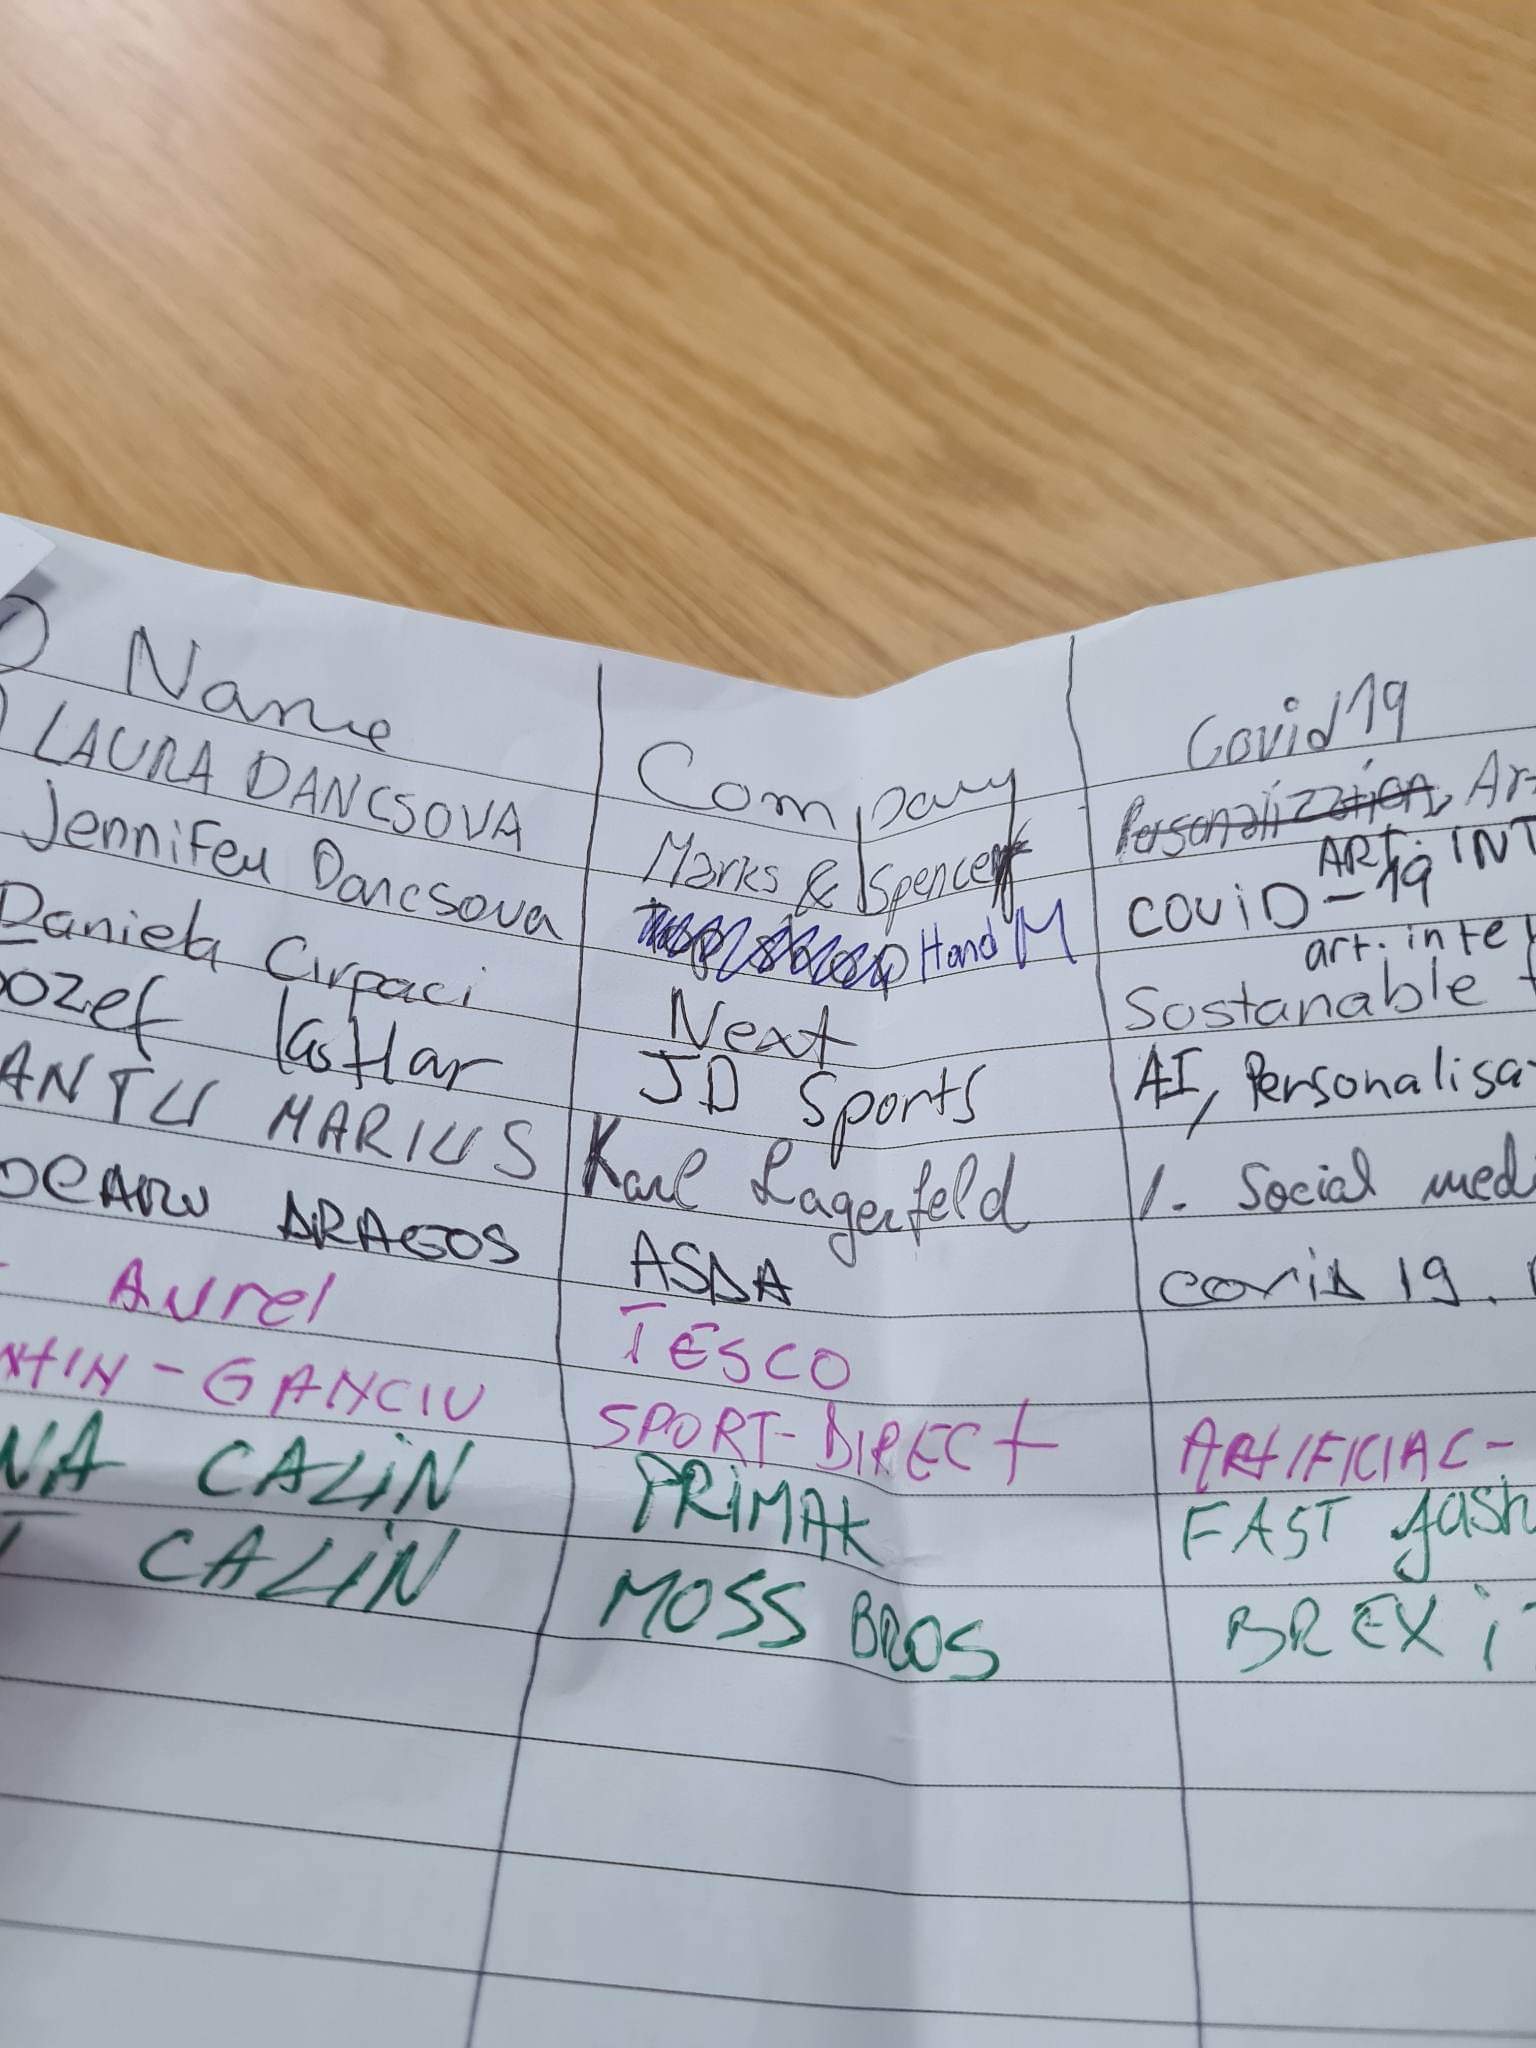 Name Company Covid 19
LAURA DANCSOVA Marks & Spencer Personalizzation, Ar
Jennifer Dancsova Hand M COVID-19 ART. INT
Daniela Cirpaci Next Sostanable art. inte
ozef Kottlar JD Sports AI, Personalisa
ANTU MARIUS Karl Lagerfeld 1. Social med
DRAGOS ASDA covid 19.
Aurel TESCO
NTIN-GANCIU SPORT-DIRECT ARTIFICIAL-
NA CALIN PRIMAK FAST fash
T CALIN MOSS BROS BREXIT